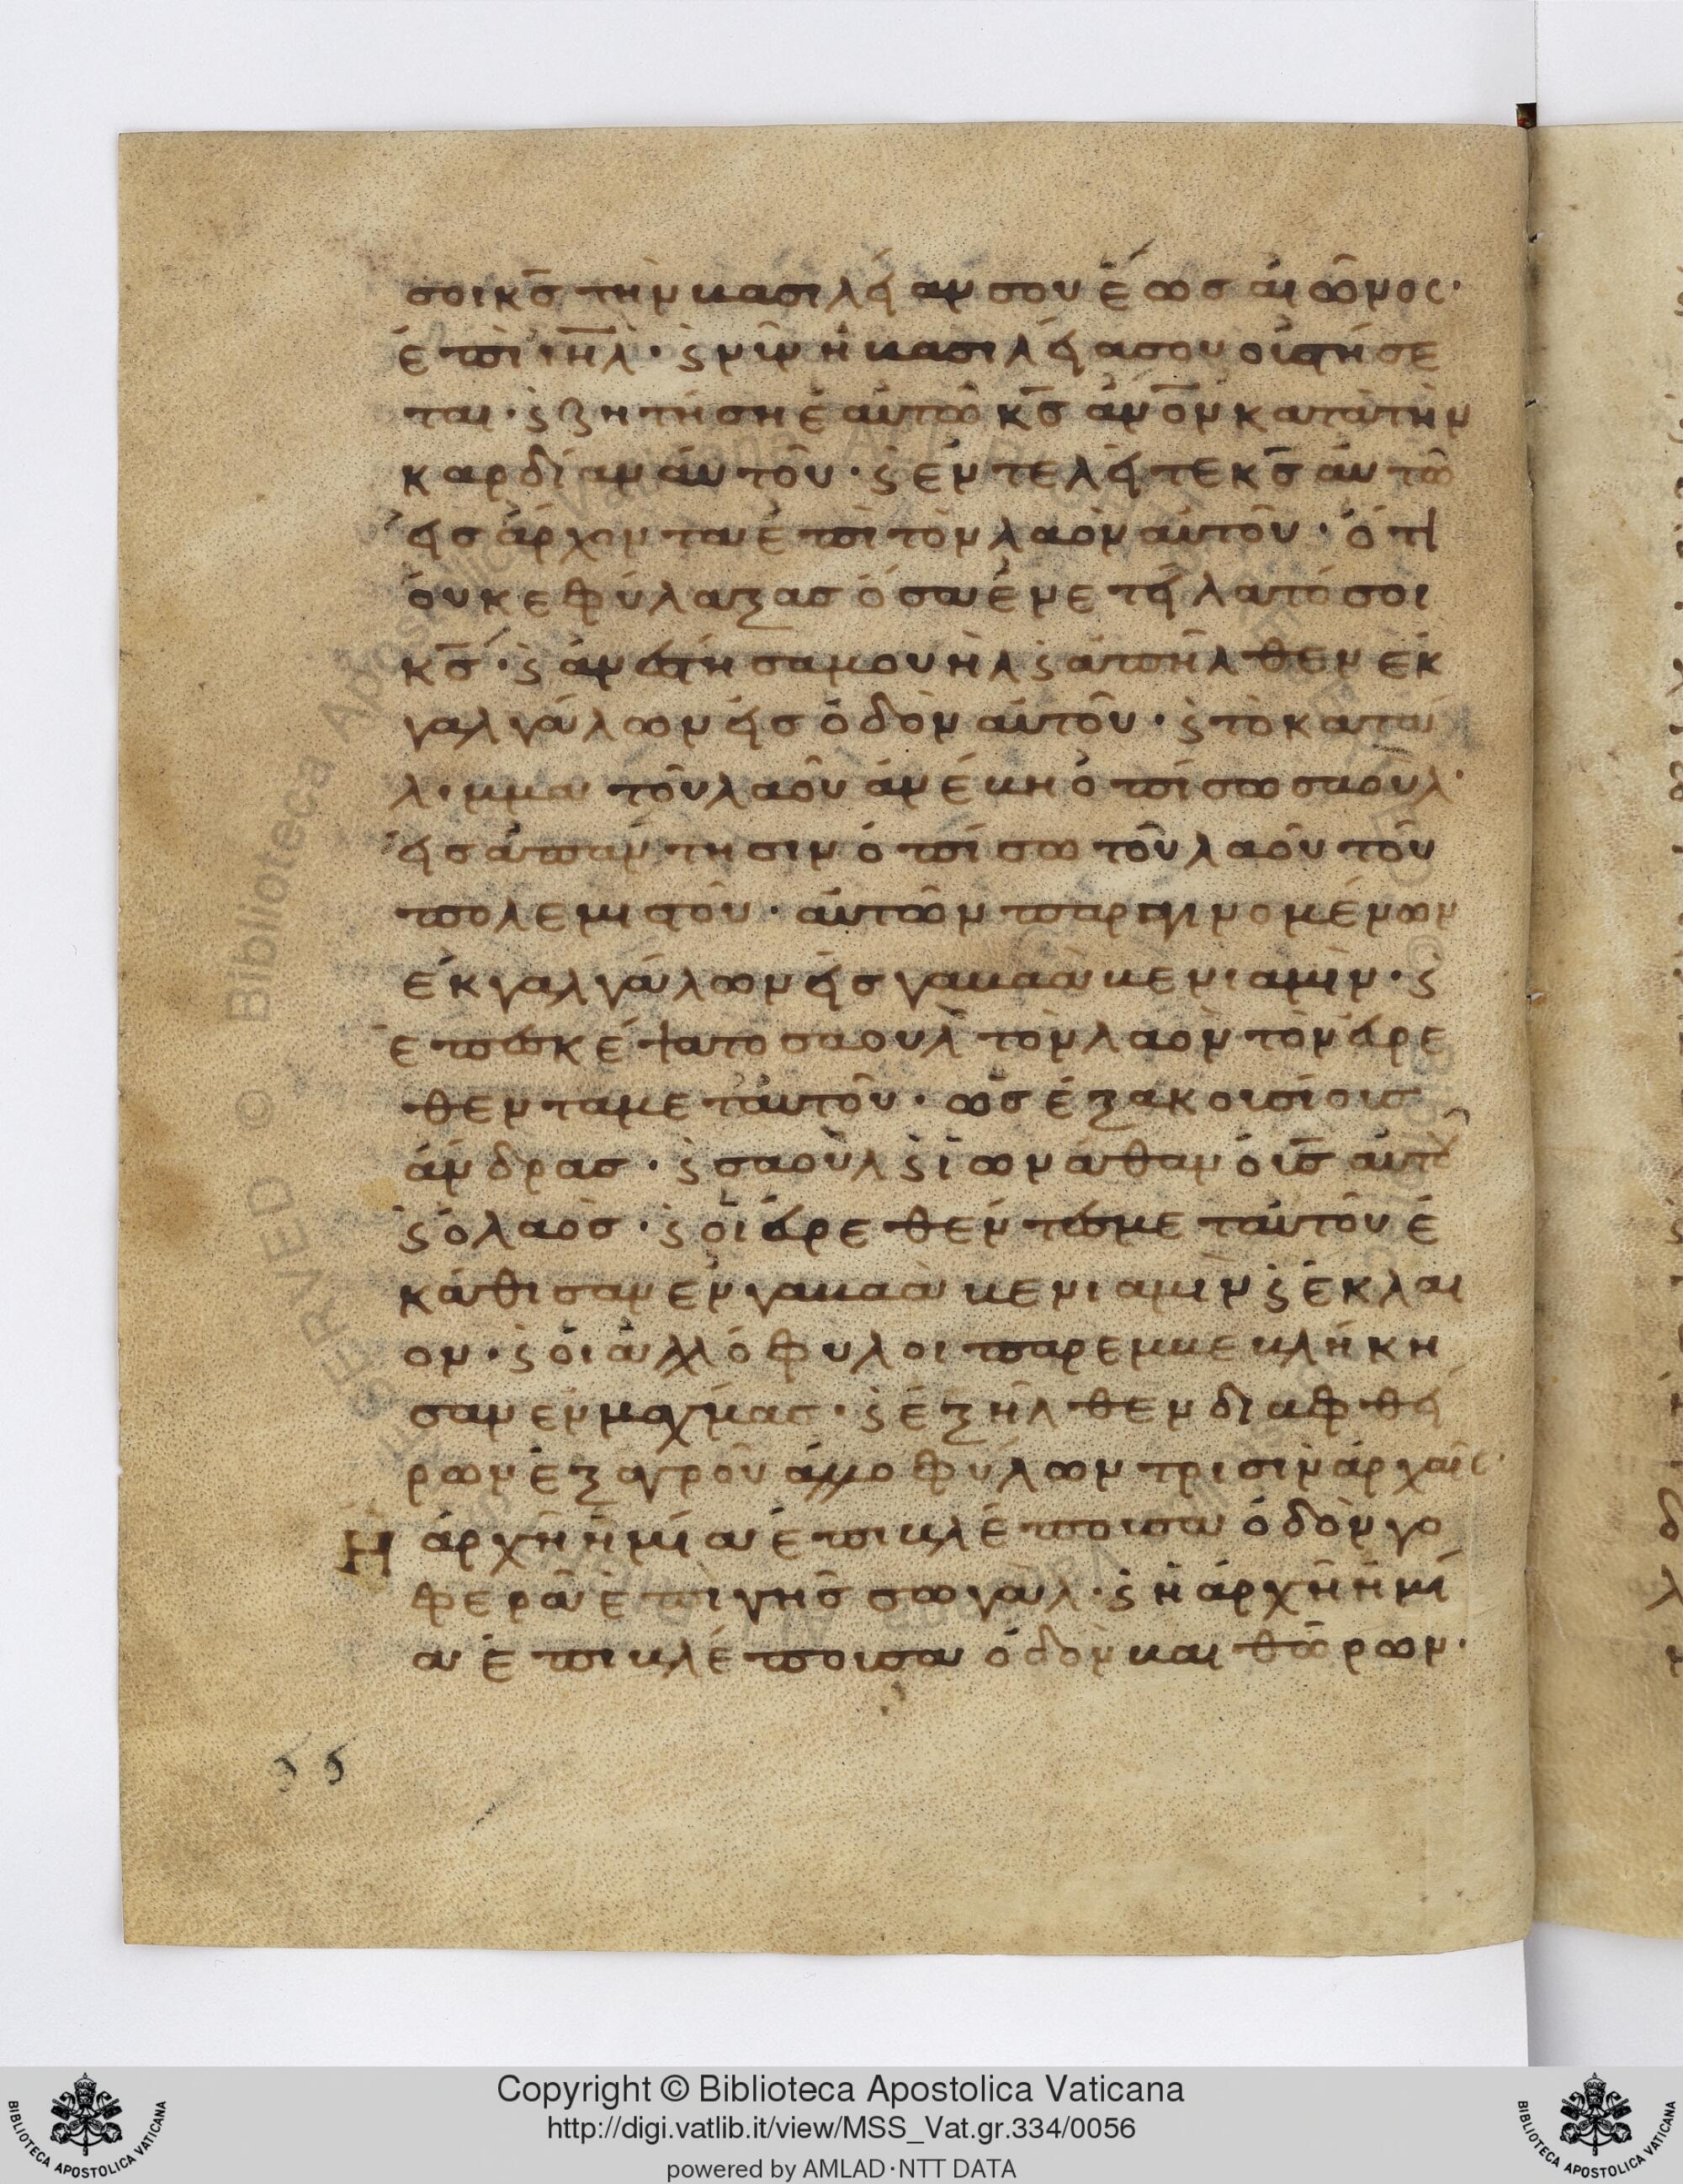 σοι κ̅ς̅ τὴν βασιλείαν σου ἕως αἰῶνος·
ἐπὶ ι̅η̅λ̅· ϛ νῦν ἡ βασιλεία σου οὐ στήσε
ται· ϛ ζητήσει ἑαυτῶ κ̅ς̅ α̅ν̅ο̅ν̅ κατὰ τὴν
καρδίαν αὐτοῦ· ϛ ἐντελεῖτε κ̅ς̅ αὐτῶ
εἰς ἄρχοντα ἐπὶ τὸν λαὸν αὐτοῦ· ὅτι
οὐκ εφύλαξας ὅσα ἐνετείλατό σοι
κ̅ς̅· ϛ ἀνέστη σαμουὴλ ϛ ἀπῆλθεν ἐκ
γαλγάλων εἰς ὁδὸν αὐτοῦ· ϛ τὸ κατά
λιμμα τοῦ λαοῦ ἀνέβη ὀπίσω σαοὺλ·
εἰς ἀπάντησιν ὀπίσω τοῦ λαοῦ τοῦ
πολεμιστοῦ· αὐτῶν παραγινομένων
ἐκ γαλγάλων εἰς γαβαὰ βενιαμὶν· ϛ
ἐπεσκέψατο σαουλ τὸν λαὸν τὸν ἑυρε
θεντα μετ αὐτοῦ· ὡς ἑξακοσίοις
ἄνδρας· ϛ σαοὺλ ϛ ἰωνάθαν ὁ υ̅ς̅ αὐτοῦ
ϛ ὁ λαὸς· ϛ οἱ εὑρεθέντες μετ αὐτοῦ ἐ
κάθισαν ἐν γαβαὰ βενιαμὶν ϛ ἔκλαι
ον· ϛ οἱ ἀλλόφυλοι παρεμβεβλήκη
σαν ἐν μαχμάς· ϛ ἐξῆλθεν διαφθεί
ρων ἐξ αγροῦ ἀλλοφύλων τρισὶν ἀρχαῖς·
Ἡ ἀρχὴ ἡ μία ἐπιβλέπουσα ὁδὸν γο
φερὰ ἐπὶ γῆς σωγὰλ· ϛ ἡ ἀρχὴ ἡ μί
α ἐπιβλέπουσα ὁδὸν βαιθώρων·
Copyright © Biblioteca Apostolica Vaticana
http://digi.vatlib.it/view/MSS_Vat.gr.334/0056
powered by AMLAD·NTT DATA
BIBLIOTECA APOSTOLICA VATICANA
BIBLIOTECA APOSTOLICA VATICANA